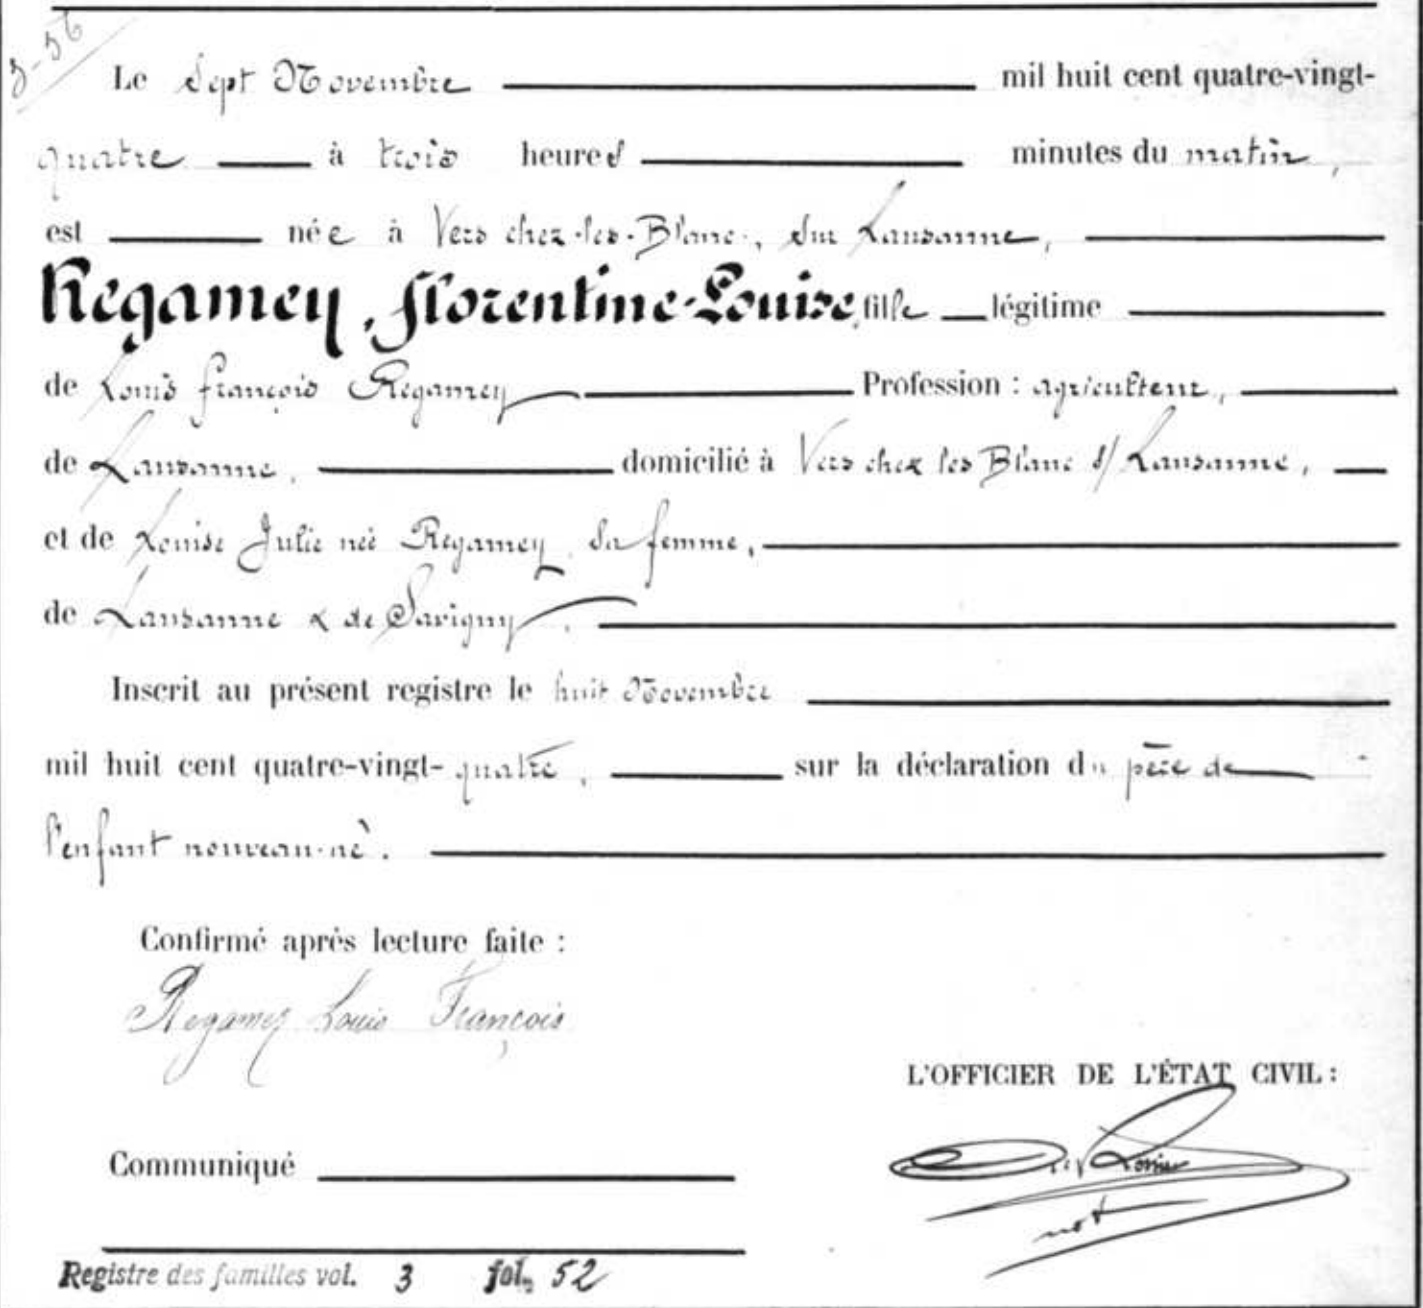 5-56
Le Sept Novembre mil huit cent quatre-vingt-
quatre à trois heures minutes du matin,
est née à Vers chez-les-Blanc, sur Lausanne,
Regamey, Florentine-Louise, fille légitime
de Louis François Regamey Profession : agriculteur,
de Lausanne, domicilié à Vers chez les Blanc s/ Lausanne,
et de Louise Julie née Regamey sa femme,
de Lausanne & de Savigny.
Inscrit au présent registre le huit Novembre
mil huit cent quatre-vingt- quatre, sur la déclaration du père de
l'enfant nouveau-né.
Confirmé après lecture faite :
Regamey Louis François
L'OFFICIER DE L'ÉTAT CIVIL :
not
Communiqué
Registre des familles vol. 3 fol. 52